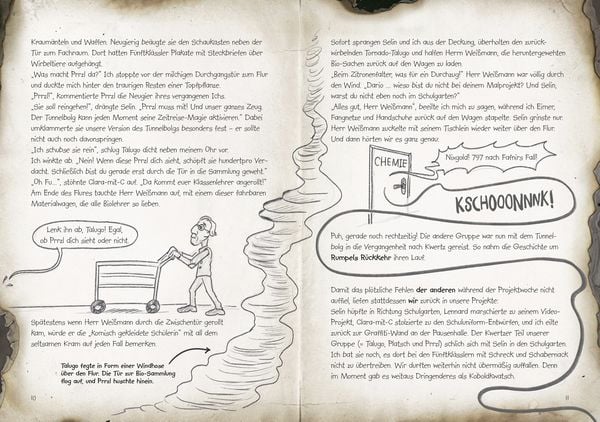 Kraumänteln und Waffen. Neugierig beäugte sie den Schaukasten neben der
Tür zum Fachraum. Dort hatten Fünftklässler Plakate mit Steckbriefen über
Wirbeltiere aufgehängt.
„Was macht Prrzl da?“ Ich stoppte vor der milchigen Durchgangstür zum Flur
und duckte mich hinter den traurigen Resten einer Topfpflanze.
„Prrzl!“, kommentierte Prrzl die Neugier ihres vergangenen Ichs.
„Sie soll reingehen!“, drängte Selin. „Prrzl muss mit! Und unser ganzes Zeug.
Der Tunnelbolg kann jeden Moment seine Zeitreise-Magie aktivieren.“ Dabei
umklammerte sie unsere Version des Tunnelbolgs besonders fest – er sollte
nicht auch noch davonspringen.
„Ich schubse sie rein“, schlug Talugo dicht neben meinem Ohr vor.
Ich winkte ab. „Nein! Wenn diese Prrzl dich sieht, schöpft sie hundertpro Ver-
dacht. Schließlich bist du gerade erst durch die Tür in die Sammlung geweht.“
„Oh Fu...“, stöhnte Clara-mit-C auf. „Da kommt euer Klassenlehrer angerollt!“
Am Ende des Flures tauchte Herr Weißmann auf, mit einem dieser fahrbaren
Materialwagen, die alle Biolehrer so lieben.
Lenk ihn ab, Talugo! Egal,
ob Prrzl dich sieht oder nicht.
Spätestens wenn Herr Weißmann durch die Zwischentür gerollt
kam, würde er die „komisch gekleidete Schülerin“ mit all dem
seltsamen Kram auf jeden Fall bemerken.
Talugo fegte in Form einer Windhose
über den Flur. Die Tür zur Bio-Sammlung
flog auf, und Prrzl huschte hinein.
10
Sofort sprangen Selin und ich aus der Deckung, überholten den zurück-
wirbelnden Tornado-Talugo und halfen Herrn Weißmann, die heruntergewehten
Bio-Sachen zurück auf den Wagen zu laden.
„Beim Zitronenfalter, was für ein Durchzug!“ Herr Weißmann war völlig durch
den Wind. „Dario ... wieso bist du nicht bei deinem Malprojekt? Und Selin,
warst du nicht eben noch im Schulgarten?“
„Alles gut, Herr Weißmann“, beeilte ich mich zu sagen, während ich Eimer,
Fangnetze und Handschuhe zurück auf den Wagen stapelte. Selin grinste nur.
Herr Weißmann zuckelte mit seinem Tischlein wieder weiter über den Flur.
Und dann hörten wir es ganz genau:
CHEMIE
Nixgold! 797 nach Fafnirs Fall!
KSCHOOONNNK!
Puh, gerade noch rechtzeitig! Die andere Gruppe war nun mit dem Tunnel-
bolg in die Vergangenheit nach Kwertz gereist. So nahm die Geschichte um
Rumpels Rückkehr ihren Lauf.
Damit das plötzliche Fehlen der anderen während der Projektwoche nicht
auffiel, liefen stattdessen wir zurück in unsere Projekte:
Selin hüpfte in Richtung Schulgarten, Lennard marschierte zu seinem Video-
Projekt, Clara-mit-C stolzierte zu den Schuluniform-Entwürfen, und ich eilte
zurück zur Graffiti-Wand an der Pausenhalle. Der Kwertzer Teil unserer
Gruppe (= Talugo, Platsch und Prrzl) schlich sich mit Selin in den Schulgarten.
Ich bat sie noch, es dort bei den Fünftklässlern mit Schreck und Schabernack
nicht zu übertreiben. Wir durften weiterhin nicht übermäßig auffallen. Denn
im Moment gab es weitaus Dringenderes als Koboldkwatsch.
11